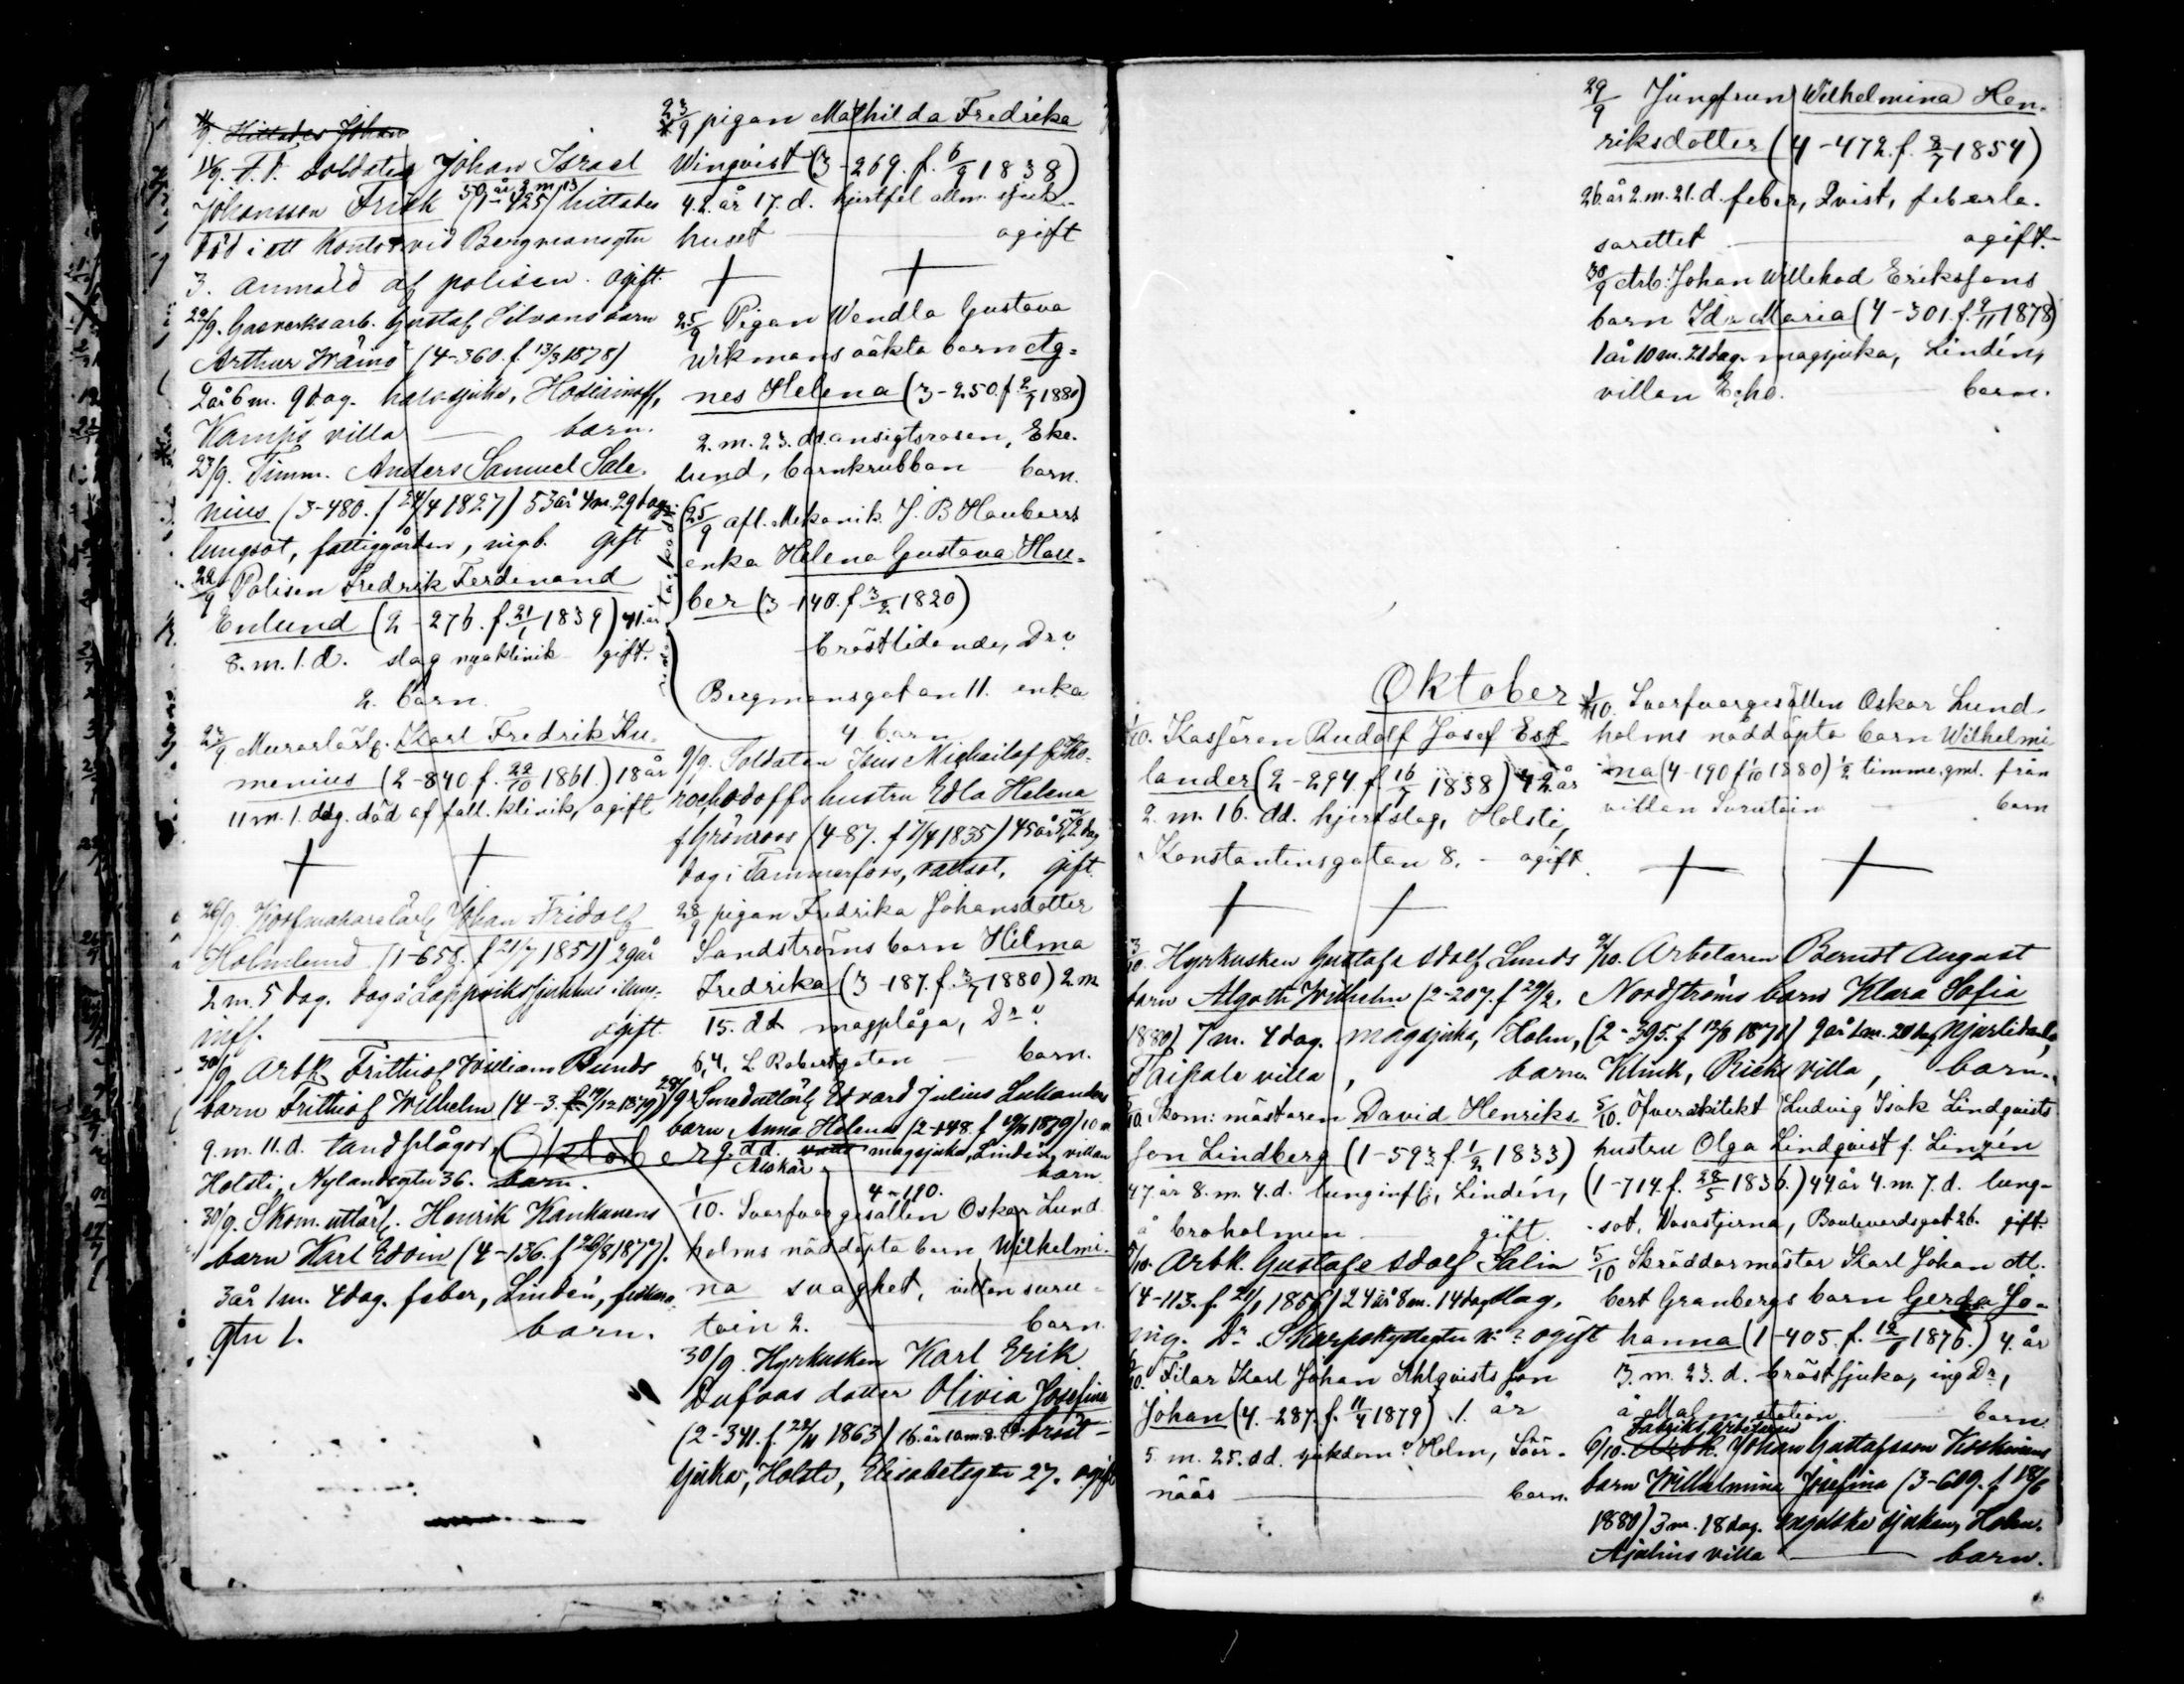 11/9. Hittades Johan
11/9. F. d. Soldaten Johan Israel
Johansson Frisk (1-425) 50 år 2 m 13 hittades
död i ett Kontor vid Bergmansgtn
3. anmäld af polisen. ogift.
22/9. Gasverksarb. Gustaf Silvans barn
Arthur Wäinö (4-360. f. 13/3 1878)
2 år 6 m. 9 dag. halssjuka,
Kamps villa barn.
23/9. Timm. Anders Samuel Sale-
nius (3-480. f 24/4 1827) 53 år 4 m. 29 dag.
lungsot, fattiggården, gift
22/9 Polisen Fredrik Ferdinand
Enlund (2-276. f. 21/1 1839) 41. år
8. m. 1. d. slag nyaklinik gift.
2. barn.
23/9 Murarlärl. Karl Fredrik Ku-
menius (2-840 f. 22/10 1861.) 18 år
11 m. 1. ddg. död af fall. klinik, ogift
26/9. Korfmakarelärl Johan Fridolf
Holmlund (1-658. f 21/7 1851) 29 år
2 m. 5 dag. dog å Lappviks sjukhus i lung-
infl. ogift.
30/9 Arbk Frithiof William Bunds
barn Frithiof Wilhelm (4-3. f. 19/12 1879)
9. m. 11. d. tandplågor,
Holsti, Nylandsgtn 36. barn.
30/9. Skom. utlärl. Henrik Kankunens
barn Karl Edvin (4-136. f 26/8 1877).
3 år 1 m. 4 dag. feber, Lindén,
gtn 1. barn.
23/9 pigan Mathilda Fredrika
Winqvist (3-269. f. 6/9 1838)
42. år 17. d. hjertfel allm. sjuk-
huset ogift
25/9 Pigan Wendla Gustava
Wikmans oäkta barn Ag-
nes Helena (3-250. f 2/7 1880)
2. m. 23. dd. ansigtsrosen, Eke-
lund, barnkrubban barn.
25/9 afl. Mekanik. J. B Haubers
enka Helena Gustava Hau-
ber (3-140. f 3/2 1820)
bröstlidande, Dr ?
Bergmansgatan 11. enka
4 barn
9/9. Soldaten Michailof
hustru Edla Helena
f Grönroos (4-87. f 7/4 1835) 45 år 5 m 2 dag
dog i Tammerfors, rödsot, gift.
28/9 pigan Fredrika Johansdotter
Sandströms barn Hilma
Fredrika (3-187. f. 3/7 1880) 2. m
15. dd magplåga, Dr ?
6, 4, L Robertsgatan barn.
28/9. Smedutlärl Edvard Julius Lukanders
barn Anna Helena (2-148. f 19/11 1879) 10 m
9. dd. magsjuka, Lindén, villan
Alskär barn.
Oktober
4-190.
1/10. Svarfvargesällen Oskar Lund-
holms nöddöpta barn Wilhelmi-
na svaghet, villan suru-
toin 2. barn.
30/9. Hyrkusken Karl Erik
Dufvas dotter Olivia Josefina
(2-341. f. 22/11 1863) 16. år 10 m. 8. d. bröst-
sjuka, Holsti, Elisabetsgtn 27. ogift
29/9 Jungfrun Wilhelmina Hen-
riksdotter (4-472. f. 8/7 1854)
26. år 2. m. 21. d. feber, Qvist, feberla-
sarettet ogift.
30/9 Arb: Johan Willehad Eriksons
barn Ida Maria (4-301. f. 9/11 1878)
1 år 10 m. 21 dag. magsjuka, Lindén,
villan Echo. barn.
Oktober
1/10. Kassören Rudolf Josef Est-
lander (2-294. f. 16/7 1838) 42 år
2. m. 16. dd. hjertslag, Holsti,
Konstantinsgatan 8. - ogift.
1/10. Svarfvargesällen Oskar Lund-
holms nöddöpta barn Wilhelmi-
na (4-190 f 1/10 1880) 1/2 timme. gml. från
villan Surutoin barn
3/10 Hyrkusken Gustaf Adolf Lunds
barn Algoth Wilhelm (2-207. f 29/2.
1880) 7 m. 4 dag. magsjuka, Holm,
Taipale villa, barn.
5/10 Skom: mästaren David Henriks-
son Lindberg (1-593 f. 1/2 1833)
47 år 8. m. 4. d. lunginfl:, Lindén,
å broholmen gift.
5/10. Arbk. Gustaf Adolf Salin
(4-113. f. 21/1 1856) 24 år 8 m. 14 dag slag,
ing. Dr. Skarpskyttegtn No ? ogift
6/10. Filar Karl Johan Ahlqvists son
Johan (4.-287. f. 11/4 1879) .1. år
5. m. 25. dd. sjukdom ? Holm, Sör-
näs barn.
2/10. Arbetaren Berndt August
Nordströms barn Klara Sofia
(2-395. f 12/8 1871) 9 år 1 m. 20 dag hjertlidande,
Klink, Ricks villa, barn.
5/10. Öfverarkitekt Ludvig Isak Lindqvists
hustru Olga Lindqvist f. Linzén
(1-714. f. 28/5 1836.) 44 år 4. m. 7. d. lung-
sot, Wasastjerna, Boulevardsgat 26. gift.
5/10 Skräddarmästar Karl Johan Al-
bert Granbergs barn Gerda Jo-
hanna (1-405. f. 12/6 1876.) 4. år
3. m. 23. d. bröstsjuka, ing Dr,
å Malm station. barn.
Fabriks arbetaren
6/10. Arbk. Johan Gustafsson Koskinens
barn Wilhelmina Josefina (3-609. f 18/6
1880) 3 m. 18 dag. Engelska sjukan, Holm.
Ajalins villa barn.